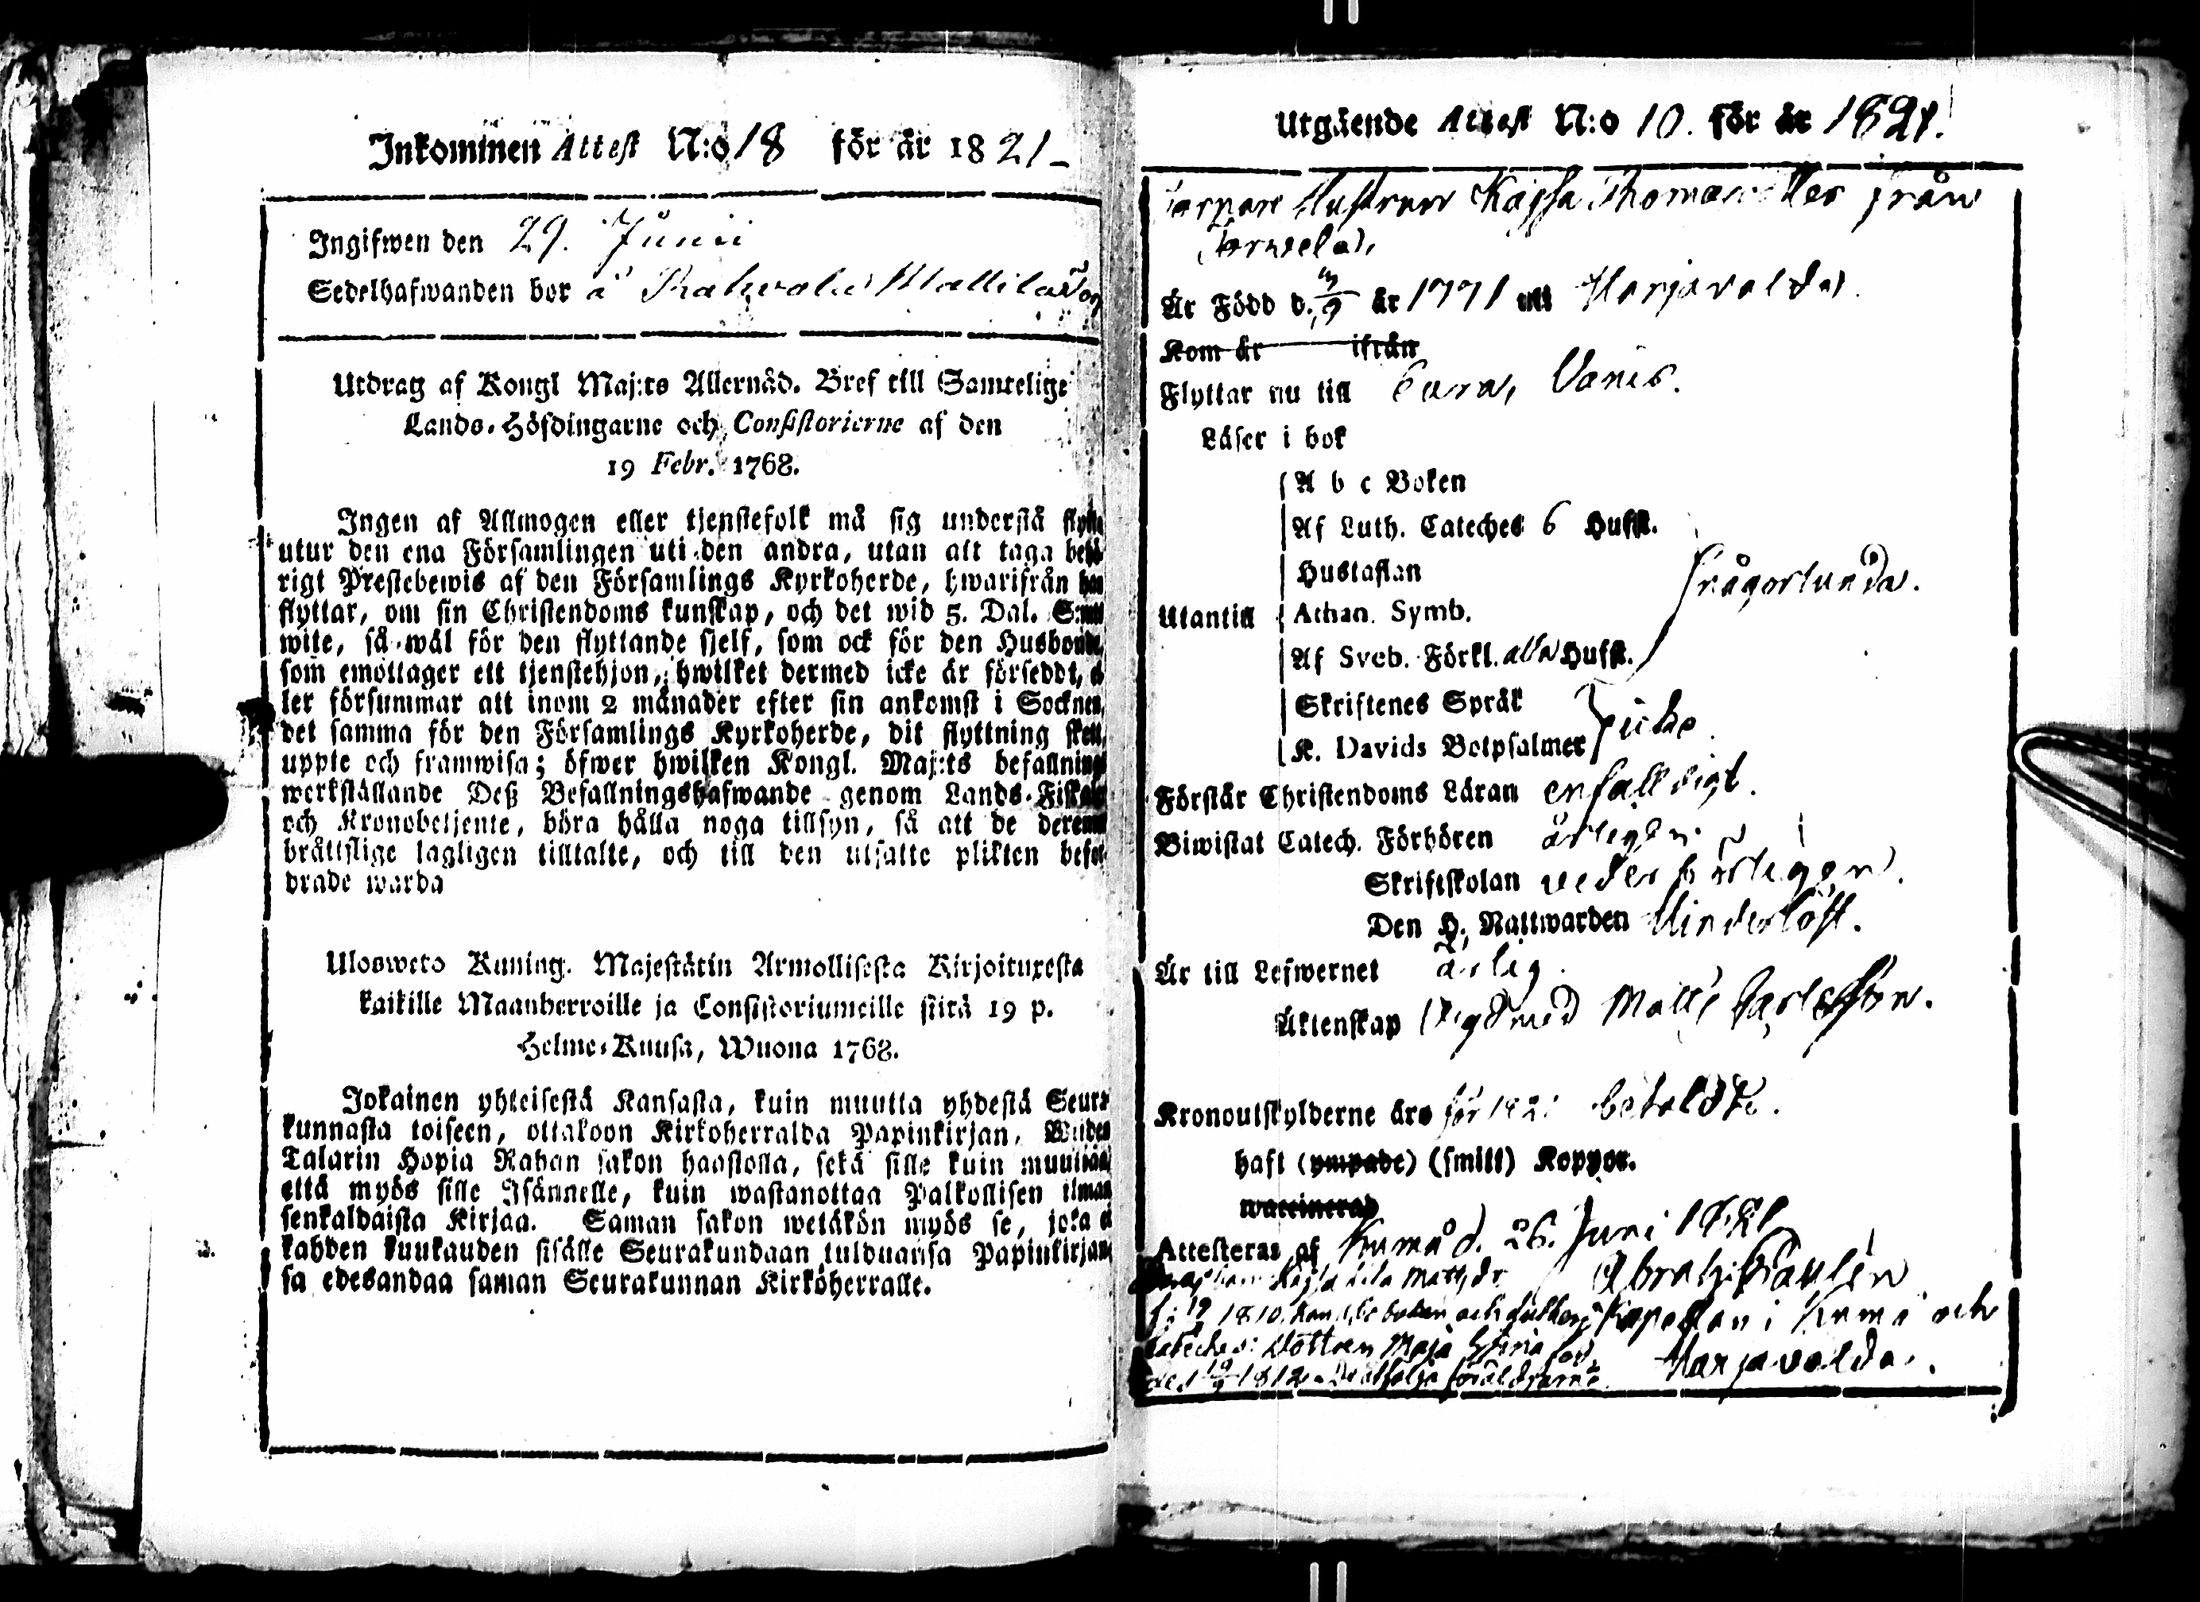 Inkommen Attest N:o 18 för år 1821
Ingifwen den 29. Junii
Sedelhafwanden bor å
Utdrag af Kongl Maj:ts Allernåd. Bref till Samtelige
Lands-Höfdingarne och Consistorierne af den
19 Febr. 1768.
Ingen af Allmogen eller tjenstefolk må sig understå flytta
utur den ena Församlingen uti den andra, utan att taga behö-
rigt Prestebewis af den Församlings Kyrkoherde, hwarifrån han
flyttar, om sin Christendoms kunskap, och det wid 5. Dal. S:mt
wite, så wäl för den flyttande sjelf, som ock för den Husbonde,
som emottager ett tjenstehjon, hwilket dermed icke är förseddt, el
ler försummar att inom 2 månader efter sin ankomst i Socknen,
det samma för den Församlings Kyrkoherde, dit flyttning skett,
uppte och framwisa; öfwer hwilken Kongl. Maj:ts befallning
werkställande Deß Befallningshafwande genom Lands-Fiskaler
och Kronobetjente, böra hålla noga tillsyn, så att de deremot
bråttslige lagligen tilltalte, och till den utsatte plikten befor-
drade warda
Ulosweto Kuning. Majestätin Armollisesta Kirjoituxesta
kaikille Maanherroille ja Consistoriumeille siitä 19 p.
Helme-Kuusa, Wuona 1768.
Jokainen yhteisestä Kansasta, kuin muutta yhdestä Seura-
kunnasta toiseen, ottakoon Kirkoherralda Papinkirjan, Wiiden
Talarin Hopia Rahan sakon haastolla, sekä sille kuin muuttaa,
että myös sille Isännelle, kuin wastanottaa Palkollisen ilman
senkaldaista Kirjaa. Saman sakon wetäkön myös se, joka ei
kahden kuukauden sisälle Seurakundaan tulduansa Papinkirjan-
sa edesandaa saman Seurakunnan Kirkoherralle.
Utgående Attest N:o 10. för år 1821.
Hustrun Kajsa från
Är Född d. år 1771 uti Harjavalda
Kom år ifrån
Flyttar nu till
Läser i bok
A b c Boken
Af Luth. Cateches 6 Hufst.
Hustaflan
Utantill
Athan. Symb.
Af Sveb. Förkl. alla Hufst.
Skriftenes Språk
K. Davids Botpsalmer
icke
Förstår Christendoms Läran enfalldigt.
Biwistat Catech. Förhören årligen
Skriftskolan vederbörligen.
Den H. Nattwarden Oinderlöst.
Är till Lefwernet ärlig.
Äktenskap Wigd med Matts
Kronoutskylderne äro för 1821 betaldte.
haft (ympade) (smitt) Koppor.
waccinerad
Attesteras af Kumå d. 26. Juni 1821
Kapellan i Kumo och
Harjavalda.